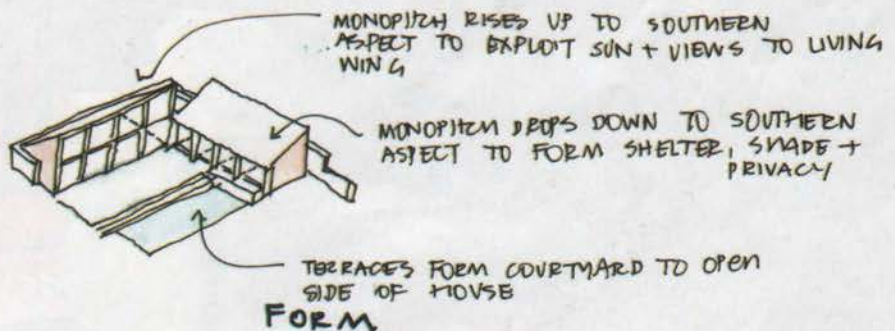 MONOPITCH RISES UP TO SOUTHERN
ASPECT TO EXPLOIT SUN + VIEWS TO LIVING
WING
MONOPITCH DROPS DOWN TO SOUTHERN
ASPECT TO FORM SHELTER, SHADE +
PRIVACY
TERRACES FORM COURTYARD TO OPEN
SIDE OF HOUSE
FORM